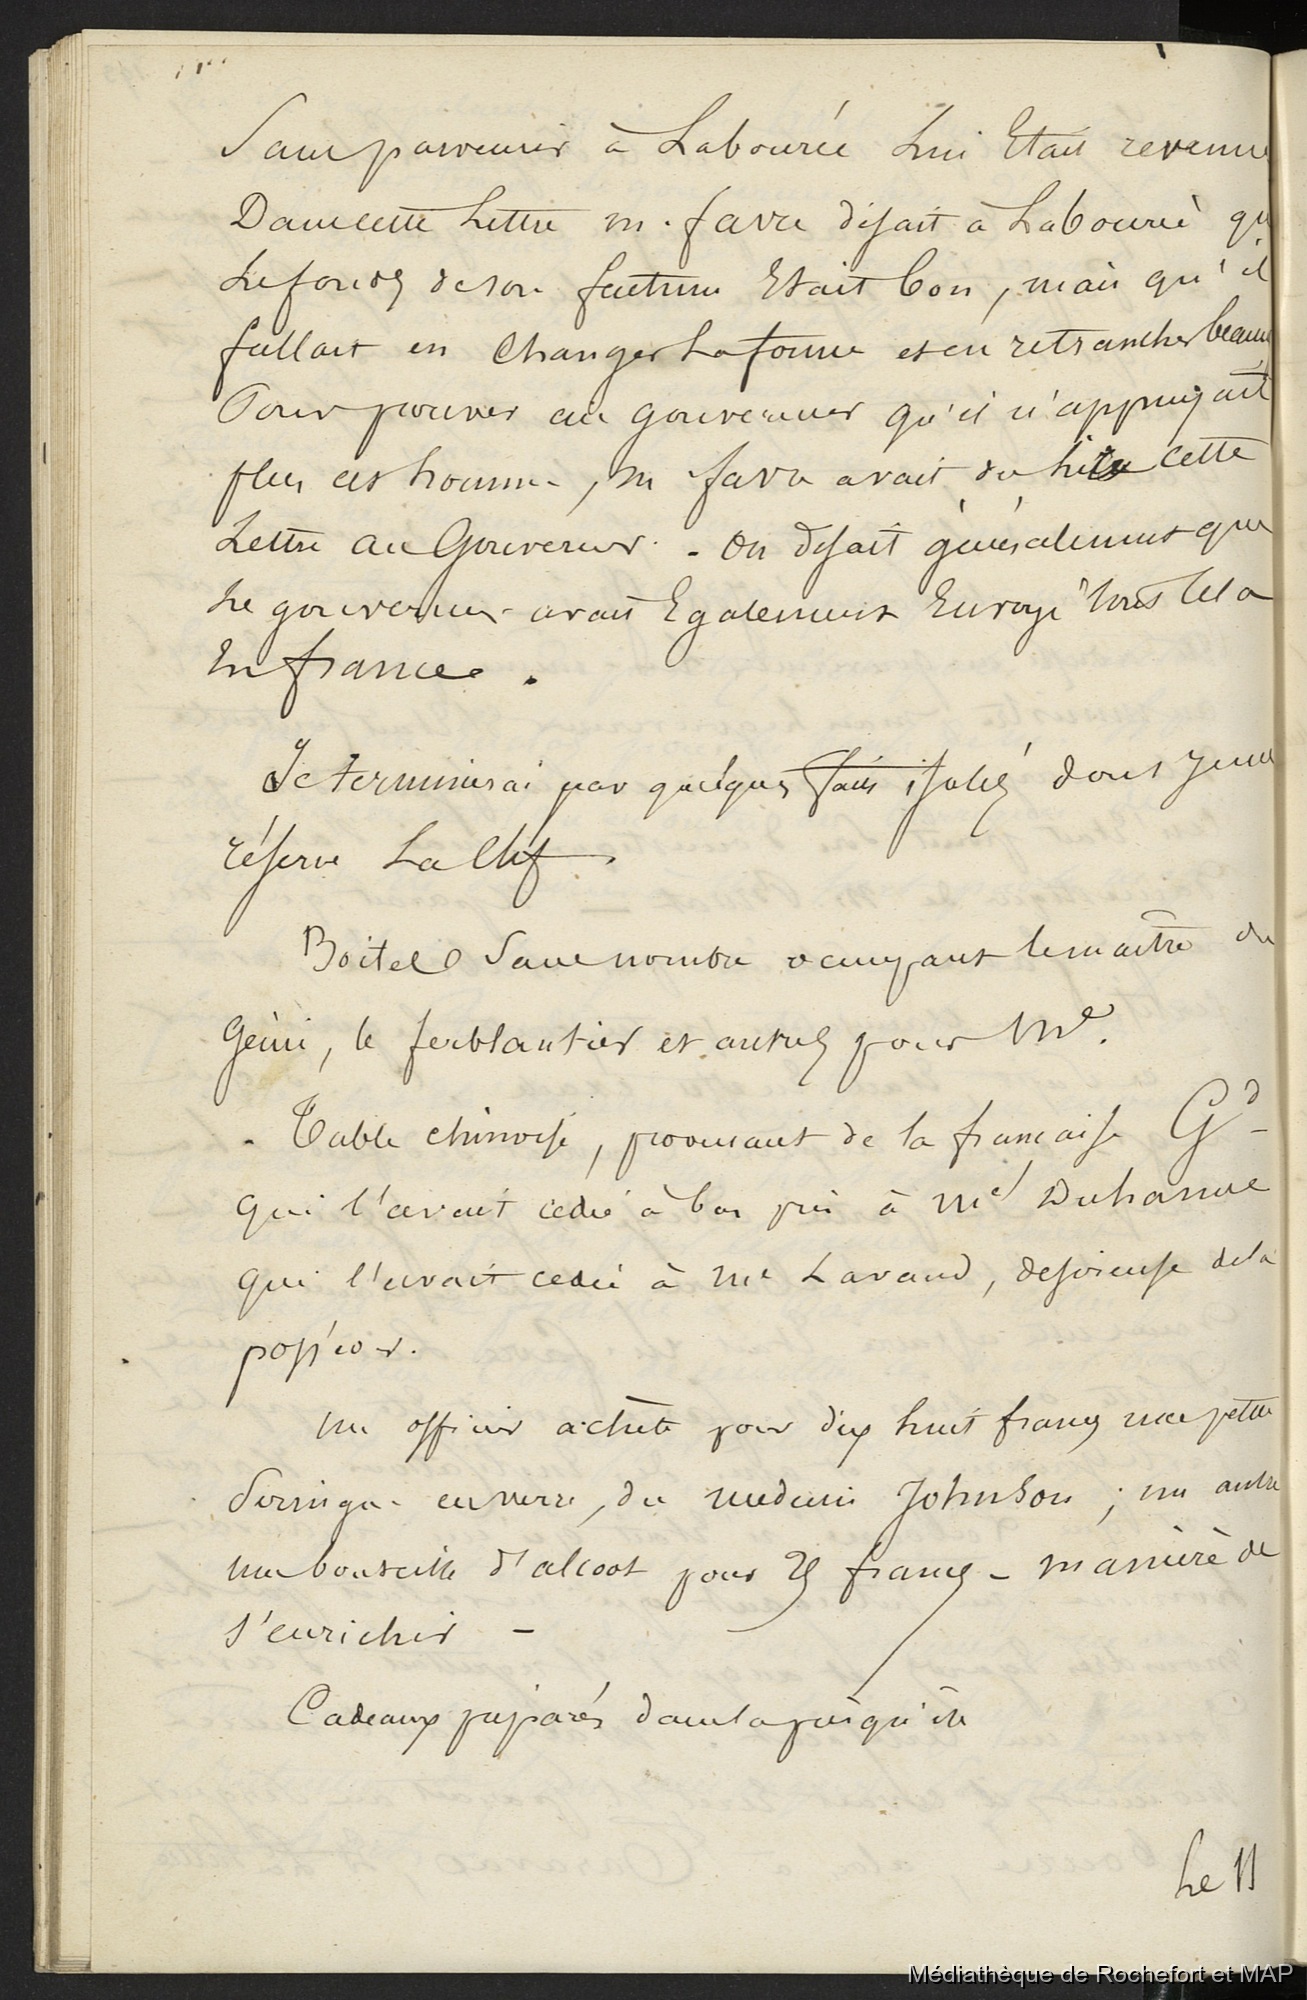 Sans parvenir à Labourée Lui Etait revenue
Dans cette Lettre m. favre disait à Labourée qu
Le fonds de son factum Etait bon, mais qu'il
fallait en Changer La forme et en retrancher beauc
Pour prouver au gouverneur qu'il n'appuyait
plus cet homme, M favre avait du lire cette
Lettre au Gouverneur. - On disait généralement que
Le gouverneur avait Egalement Envoyé tout cela
En france.
Je terminerai par quelques faits isolés dont je me
réserve La Clef.
Boitel Sans nombre occupant le maître du
Génie, le ferblantier et autres pour Me.
- Table chinoise, provenant de la française Gd -
qui l'avait cédé à bas prix à Me Duhamel
qui l'avait cédé à Me Lavaud, desireuse de la
posséder.
un officier achete pour dix huit francs une petite
Seringue en verre, du medecin Johnson ; un autre
une bouteille d'alcool pour 25 francs - manière de
s'enrichir -
Cadeaux préparés dans la presqu'île
Le 11
Médiathèque de Rochefort et MAP